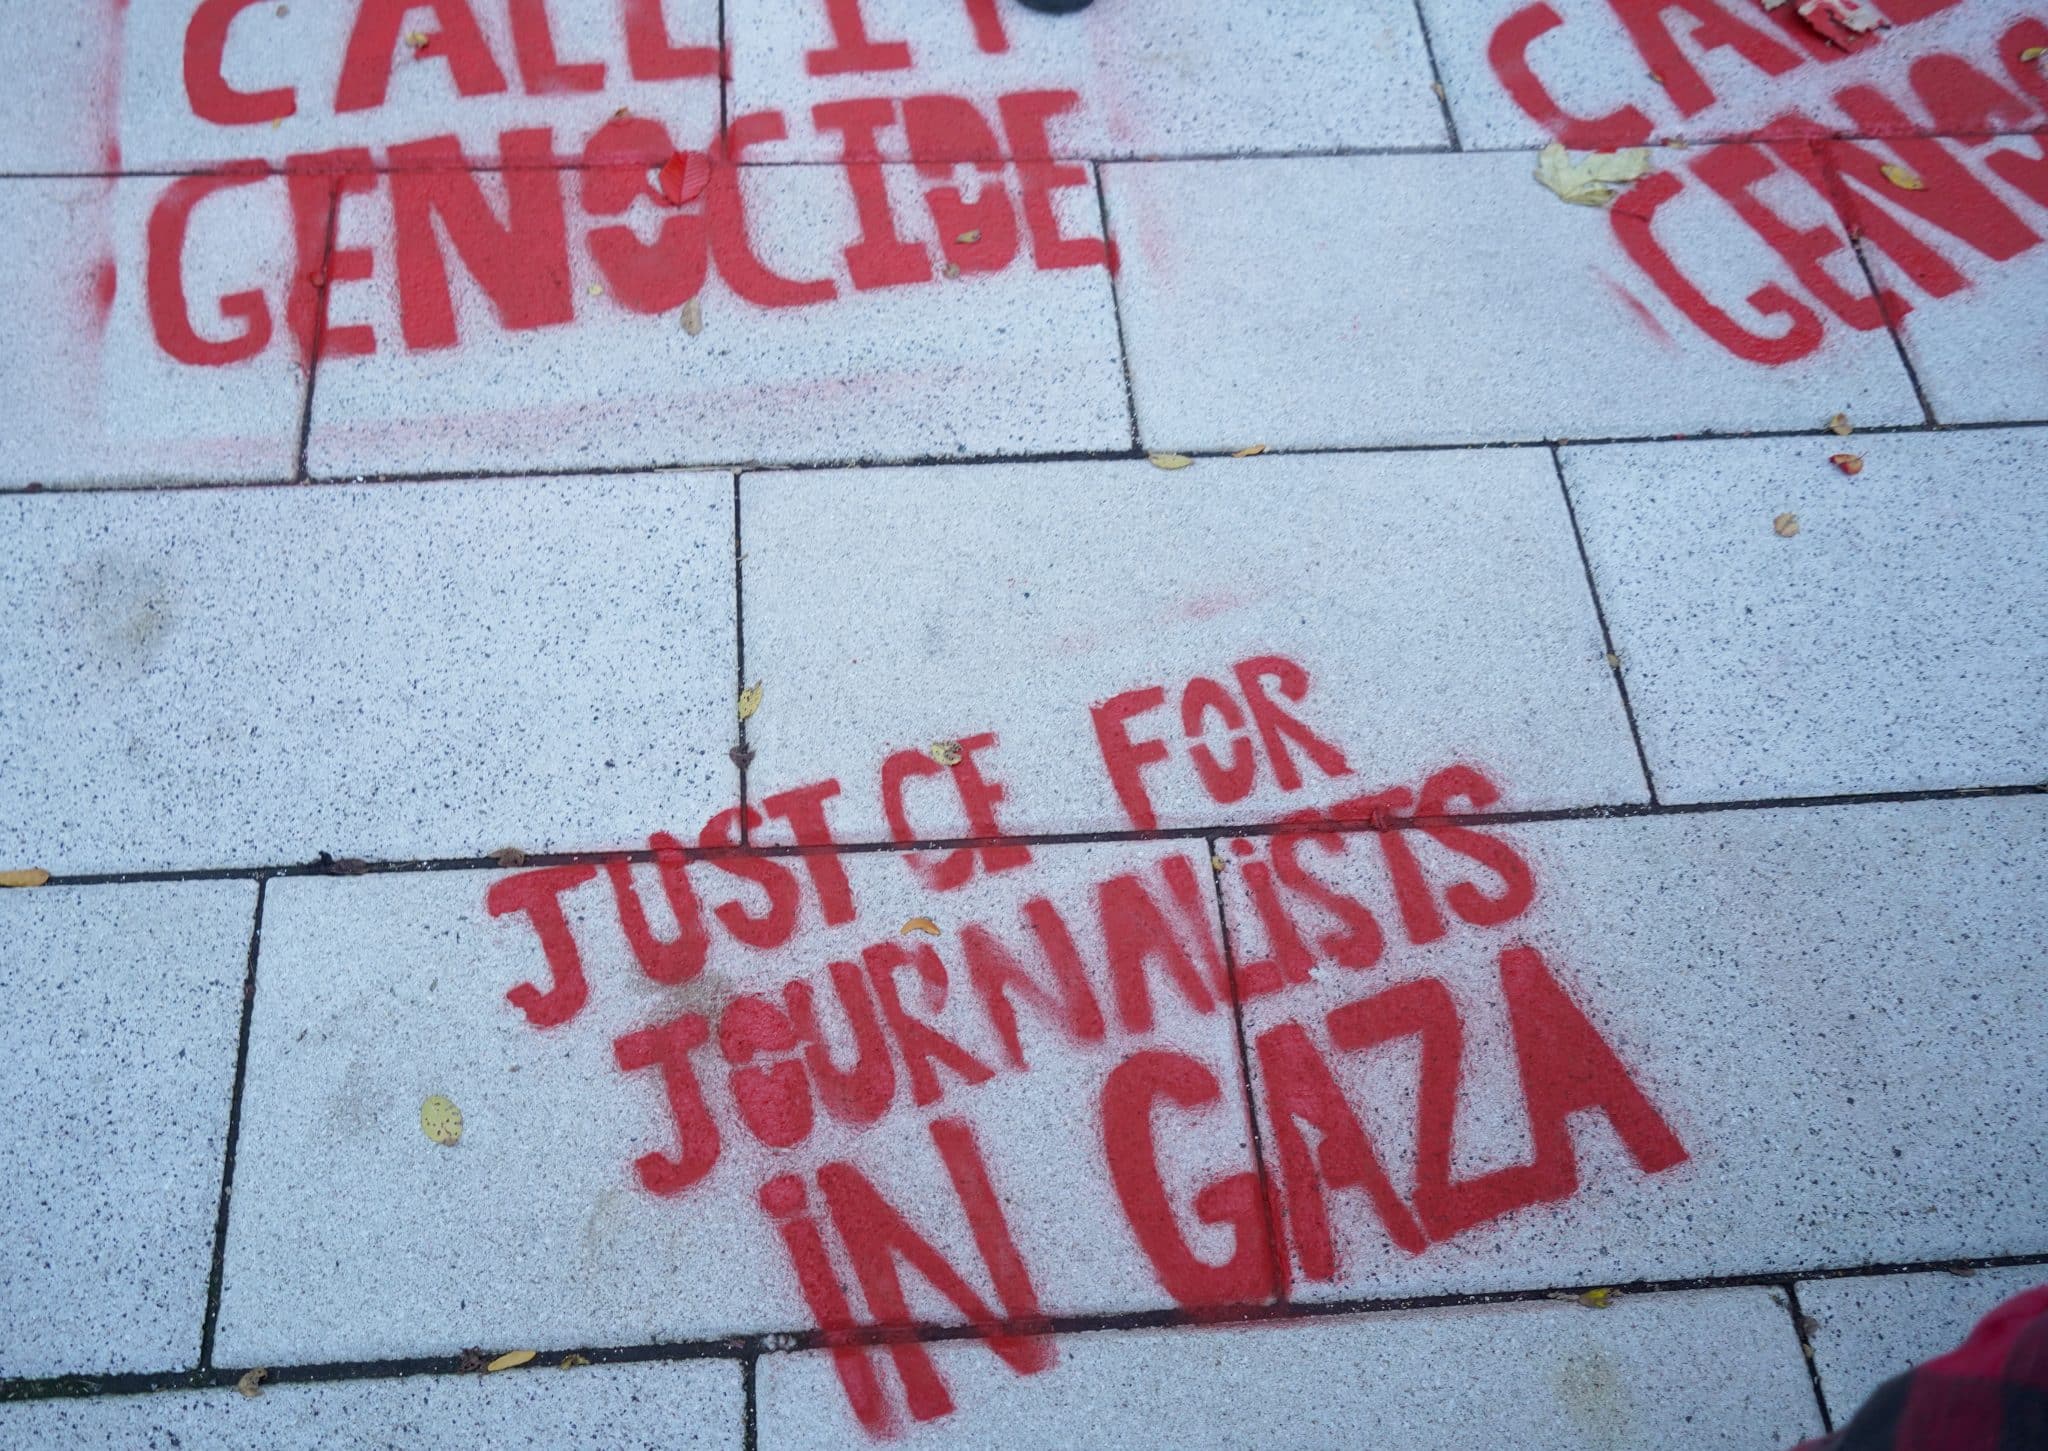 CALL IT
GENOCIDE
CAL
GENO
JUST CE FOR
JOURNALiSTS
iN GAZA